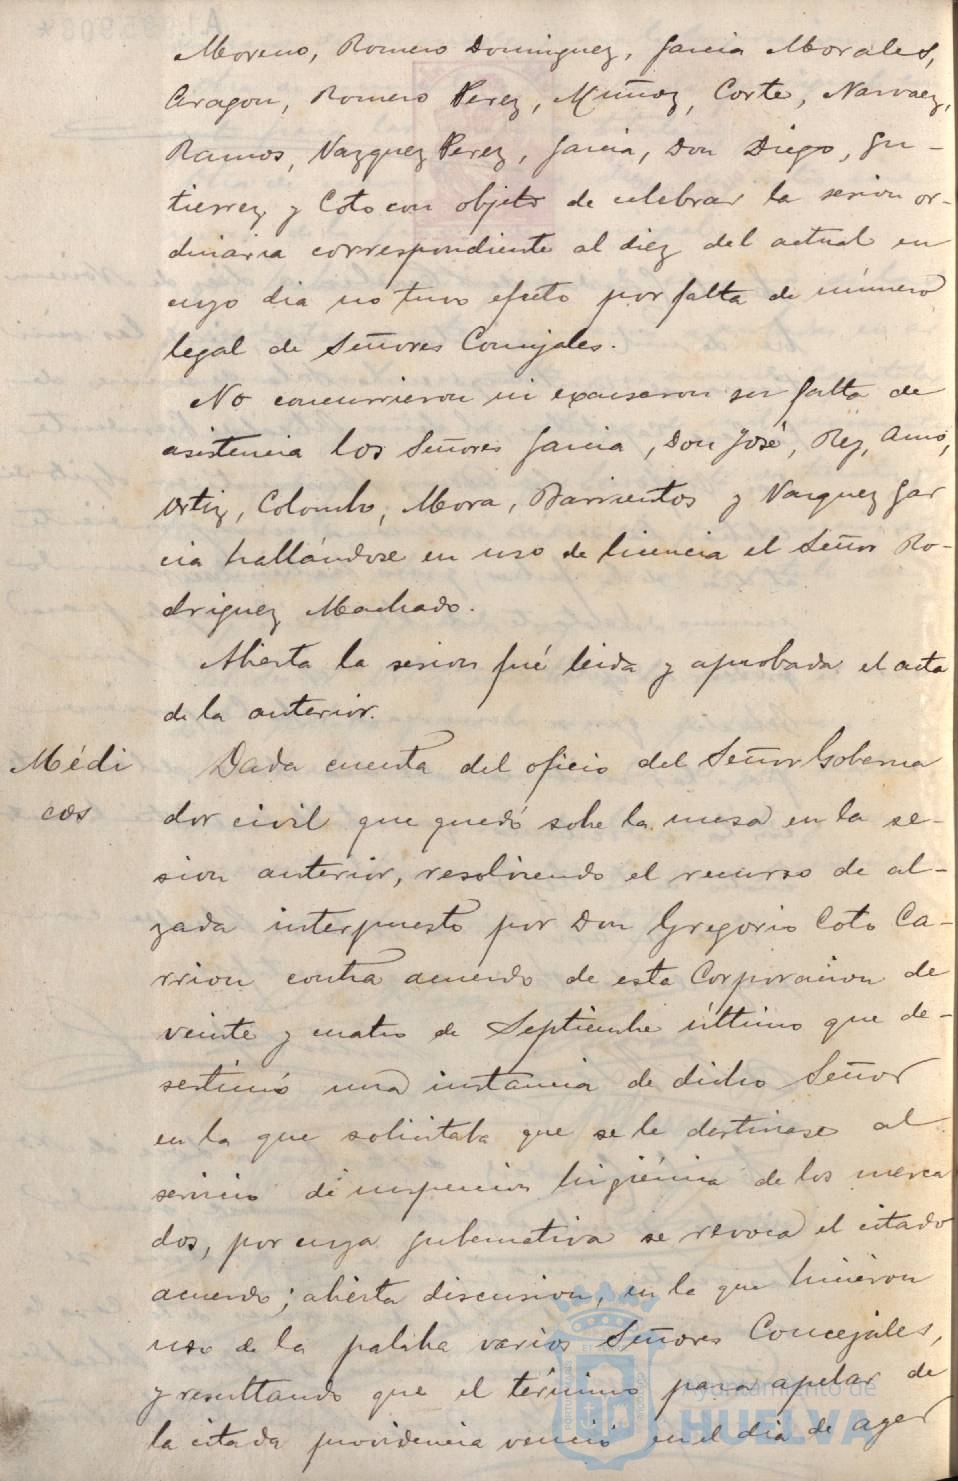 Moreno, Romero Dominguez, Garcia Morales,
Aragon, Romero Perez, Muñoz, Corte, Narvaez,
Ramos, Vazquez Perez, Garcia, Don Diego, Gu-
tierrez y Coto con objeto de celebrar la sesion or-
dinaria correspondiente al diez del actual en
cuyo dia no tuvo efecto por falta de número
legal de Señores Concejales.
No concurrieron ni excusaron su falta de
asistencia los Señores Garcia, Don José, Rey, Amo,
Ortiz, Colombo, Mora, Barrientos y Vazquez Gar
cia hallándose en uso de licencia el Señor Ro-
driguez Machado.
Abierta la sesion fué leida y aprobada el acta
de la anterior.
Médi
cos
Dada cuenta del oficio del Señor Goberna
dor civil que quedó sobre la mesa en la se-
sion anterior, resolviendo el recurso de al-
zada interpuesto por Don Gregorio Coto Ca-
rrion contra acuerdo de esta Corporacion de
veinte y cuatro de Septiembre último que de-
sestimó una instancia de dicho Señor
en la que solicitaba que se le destinase al
servicio de inspeccion higiénica de los merca
dos, por cuya gubernativa se revoca el citado
acuerdo; abierta discusion, en la que hicieron
uso de la palabra varios Señores Concejales,
y resultando que el término para apelar de
la citada providencia venció en el dia de ayer
Ayuntamiento de
HUELVA